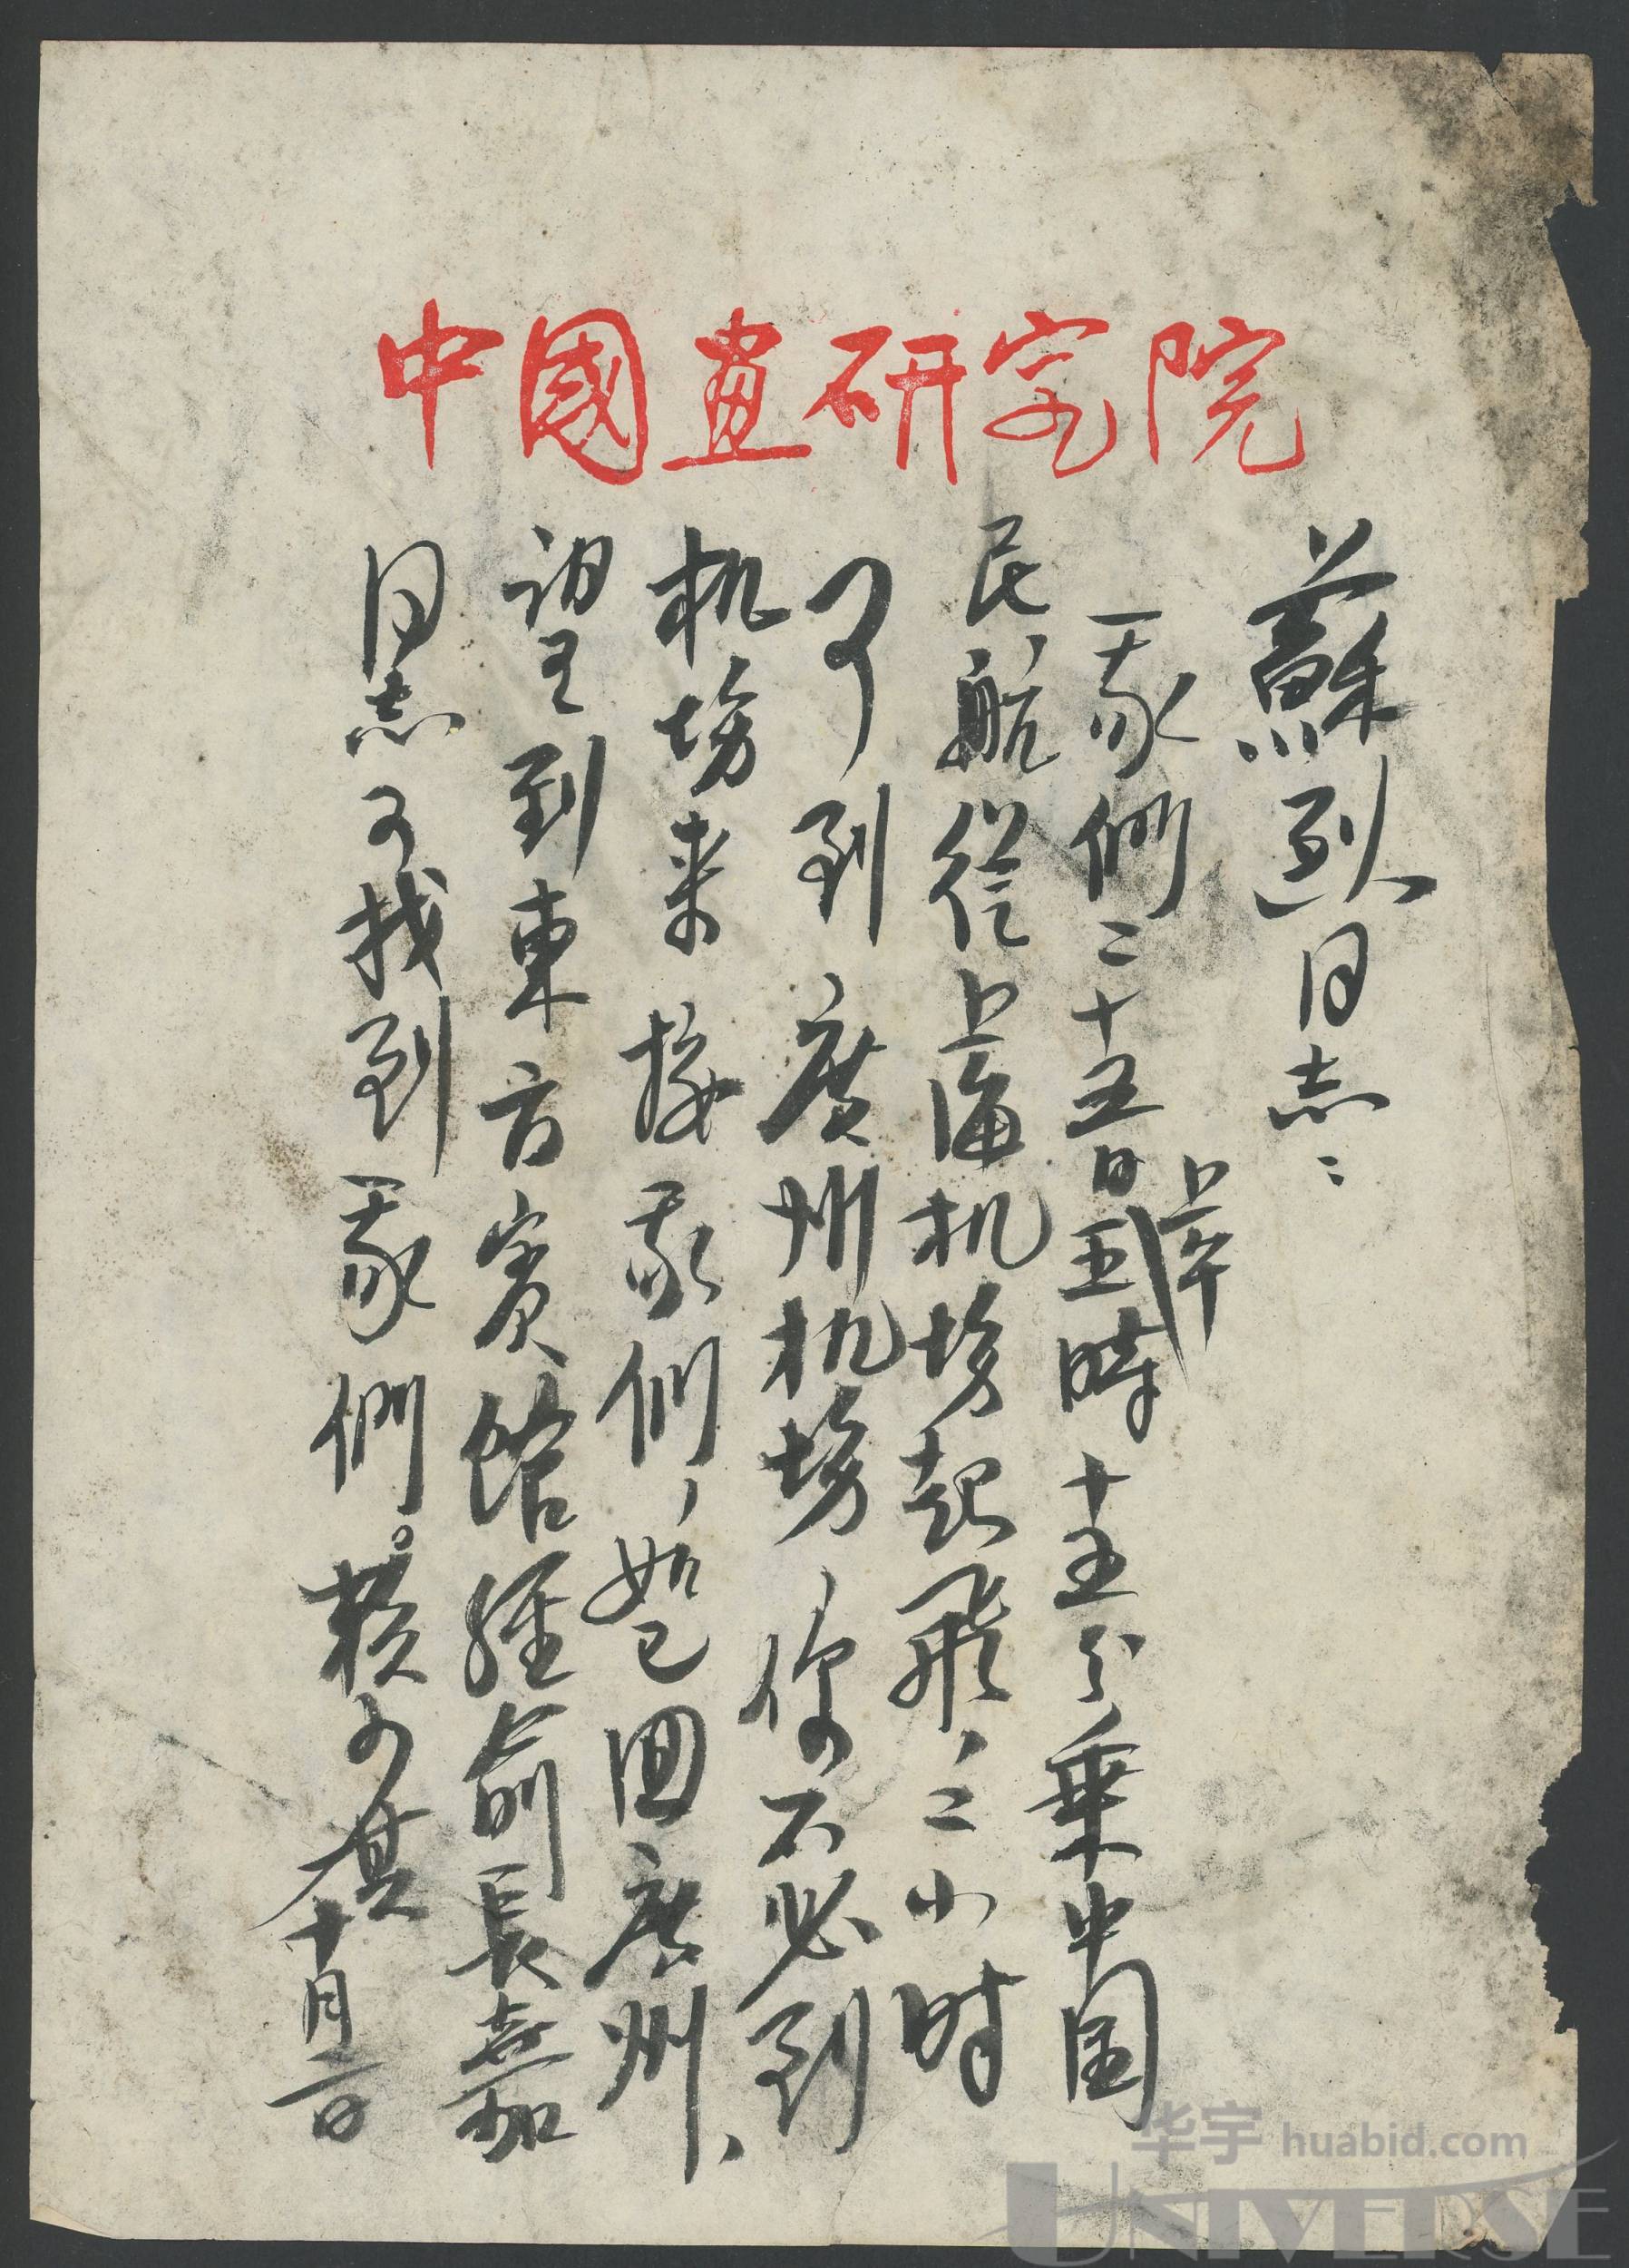 中國畫研究院
蘇烈同志：
我們二十五日上午五時十五分乘中国
民航從上海机場起飛，二小時
可到廣州机場，你不必到
机場来接我们，如已回廣州、
望到東方賓館經俞長嘉
同志可找到我們。賴少其十月二日
华宇 huabid.com
UNIVERSE